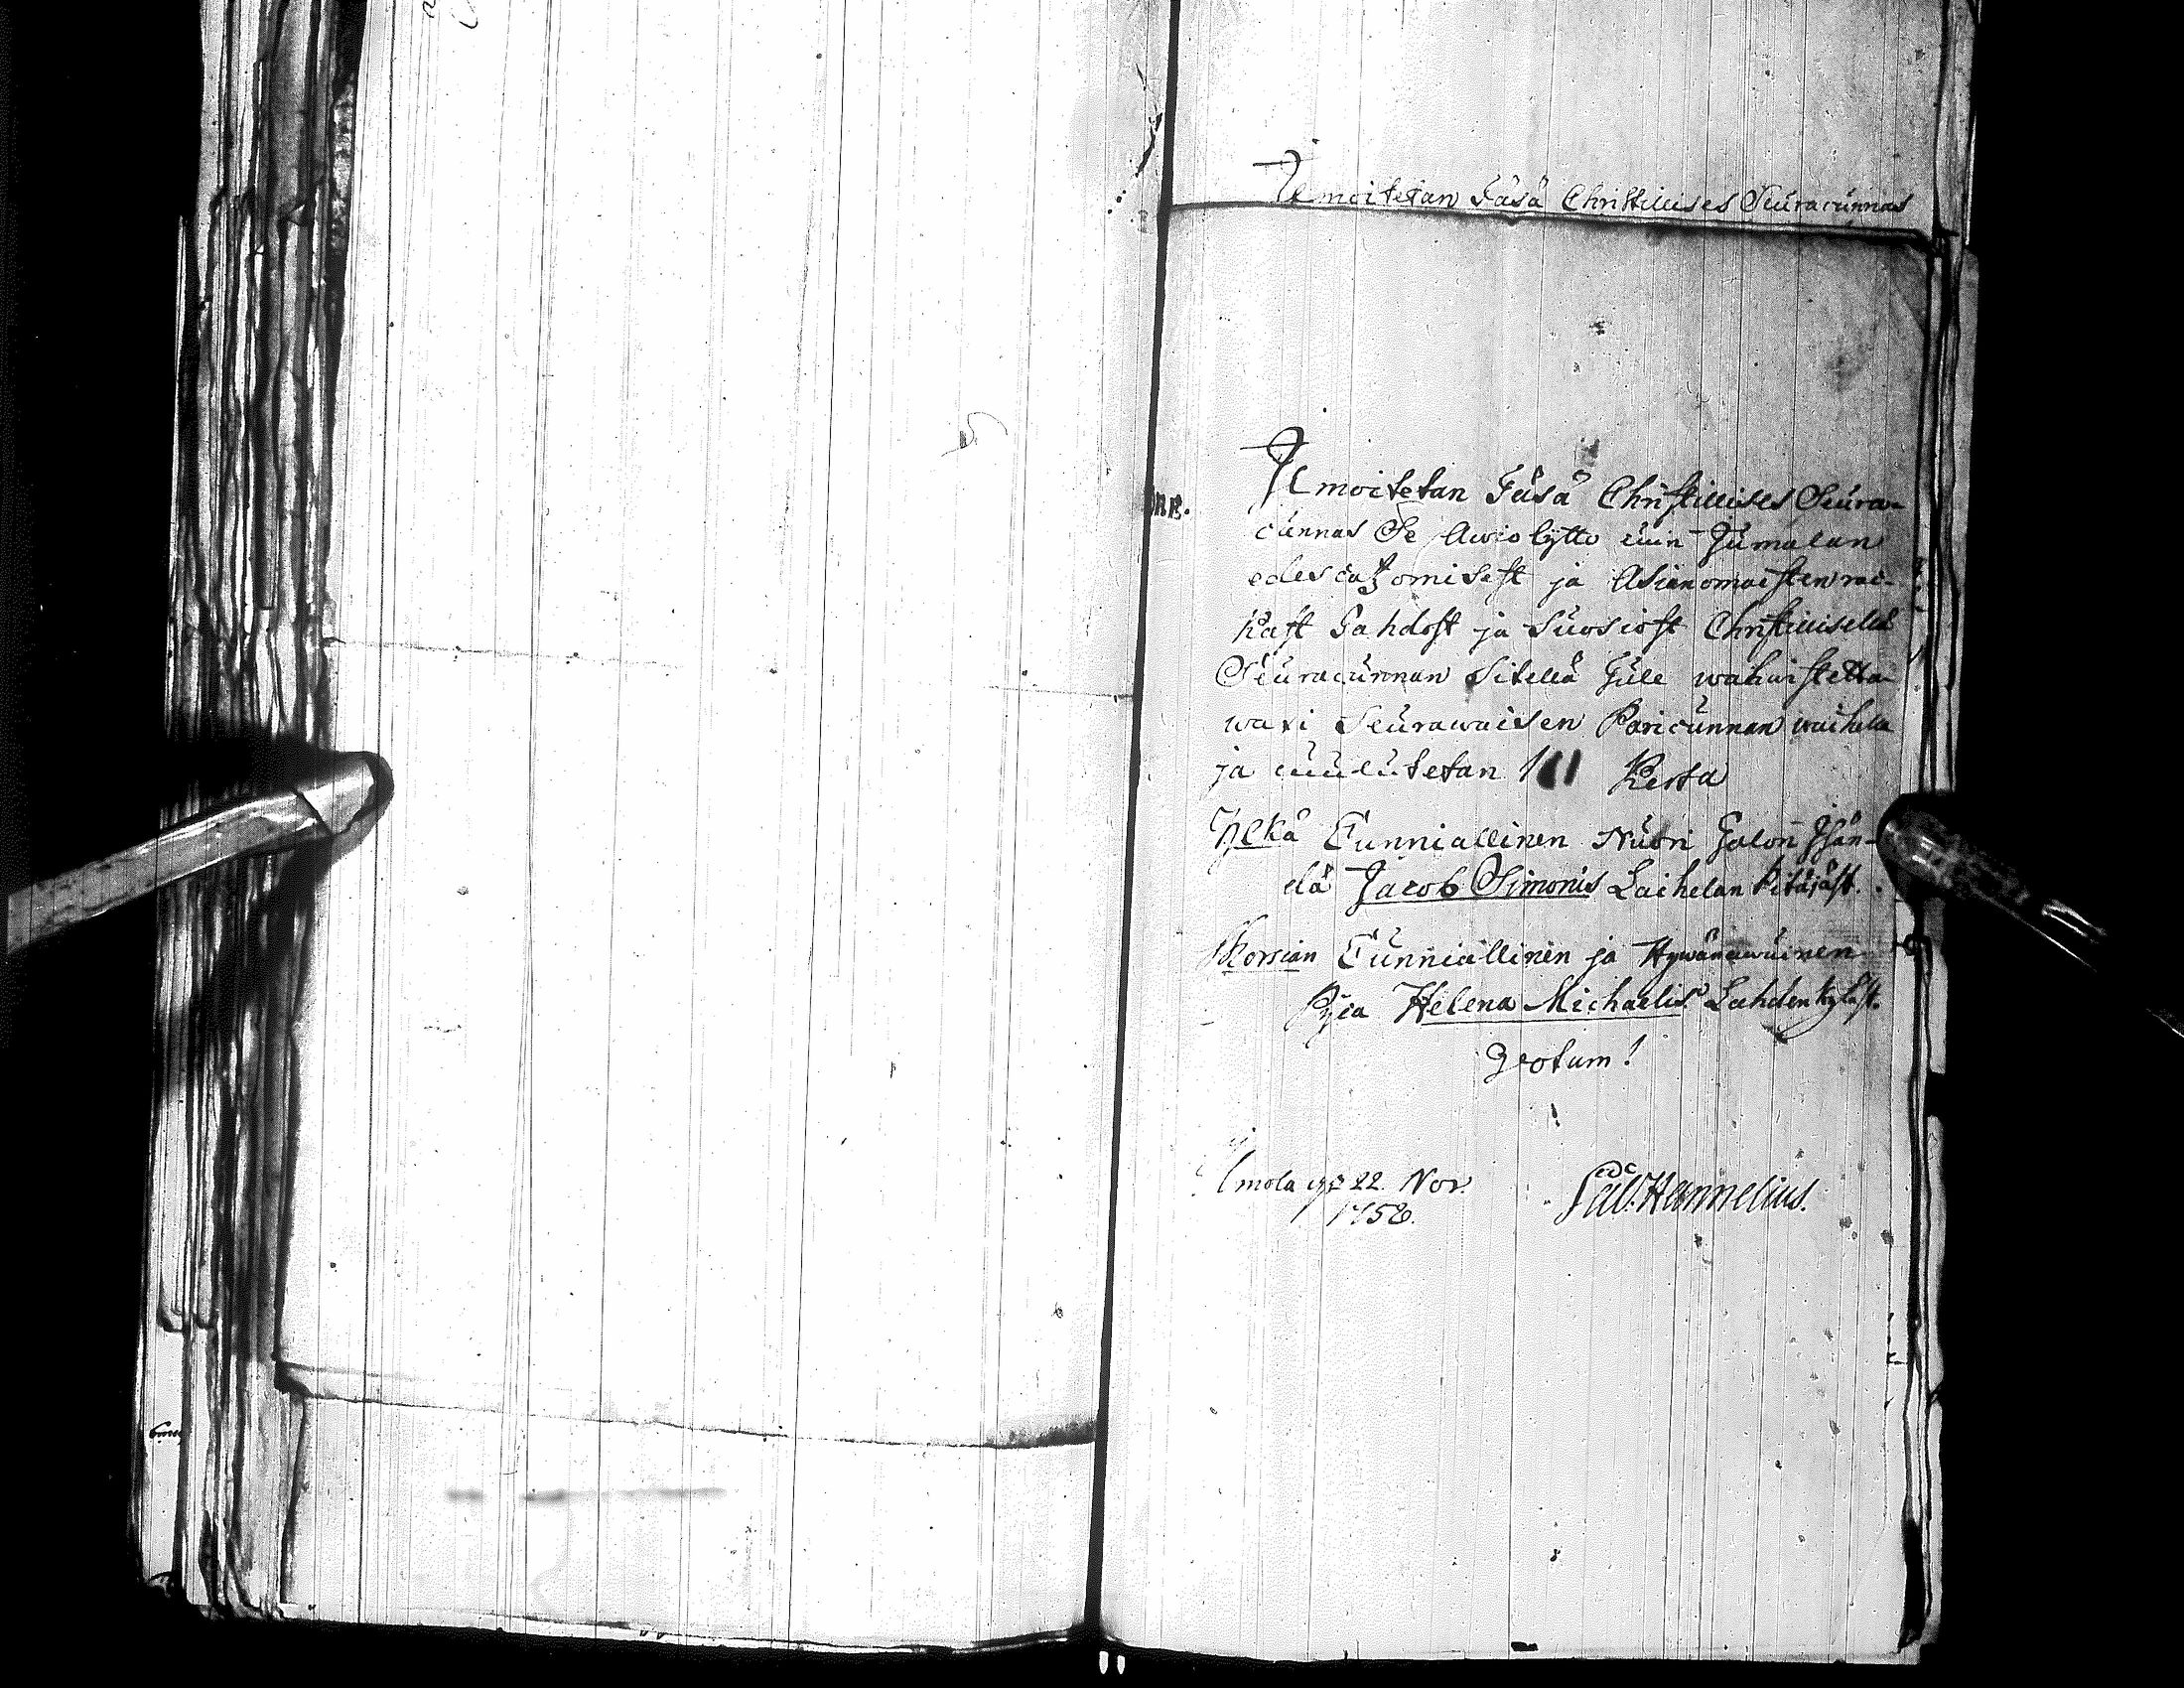 Ilmoitetan Täsä Christillises Seuracunnas
Ilmoitetan Täsä Christillises Seura-
cunnas Se Awio lijtto cuin Jumalan
edescatzomisest ja Asianomaisten rac-
kast Tahdost ja Suosiost Christilliseld
Seuracunnan Sitellä Tule wahwistetta-
waxi Seurawaisen Paricunnan waihela
ja cuulutetan 111 Kerta
Ylkä Cunniallinen Nuori Talon Isän-
dä Jacob Simonis Laihelan Pitäjäst.
Morsian Cunniallinen ja Hywänawuinen
Pyia Helena Michaelis Lahden kyläst.
Notum!
Ilmola 22. Nov.
1756.
Hannelius.